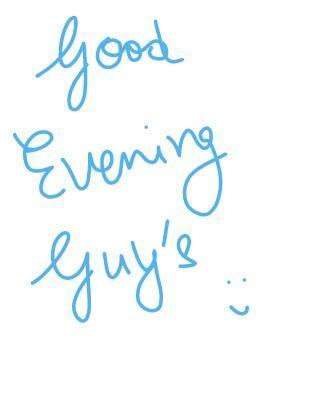 Good
Evening
Guy's